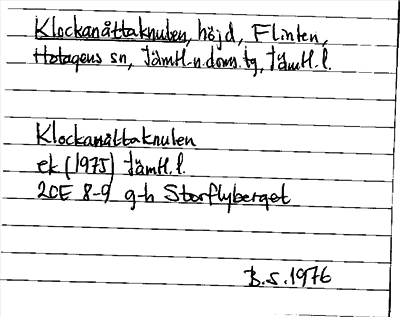 Klockanåttaknulen, höjd, Flinten,
Hotagens sn, Jämtl.n.doms.tg, Jämtl.l.
Klockanåttaknulen
ek (1975) Jämtl.l.
20E 8-9 g-h Storflyberget
B.S. 1976